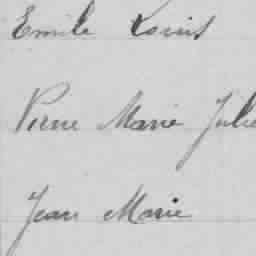 Emile Louis
Pierre Marie Julie
Jean Marie